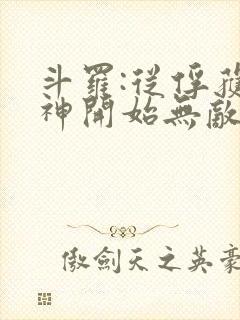 斗羅:從俘獲
神開始無敵
傲劍天之英豪